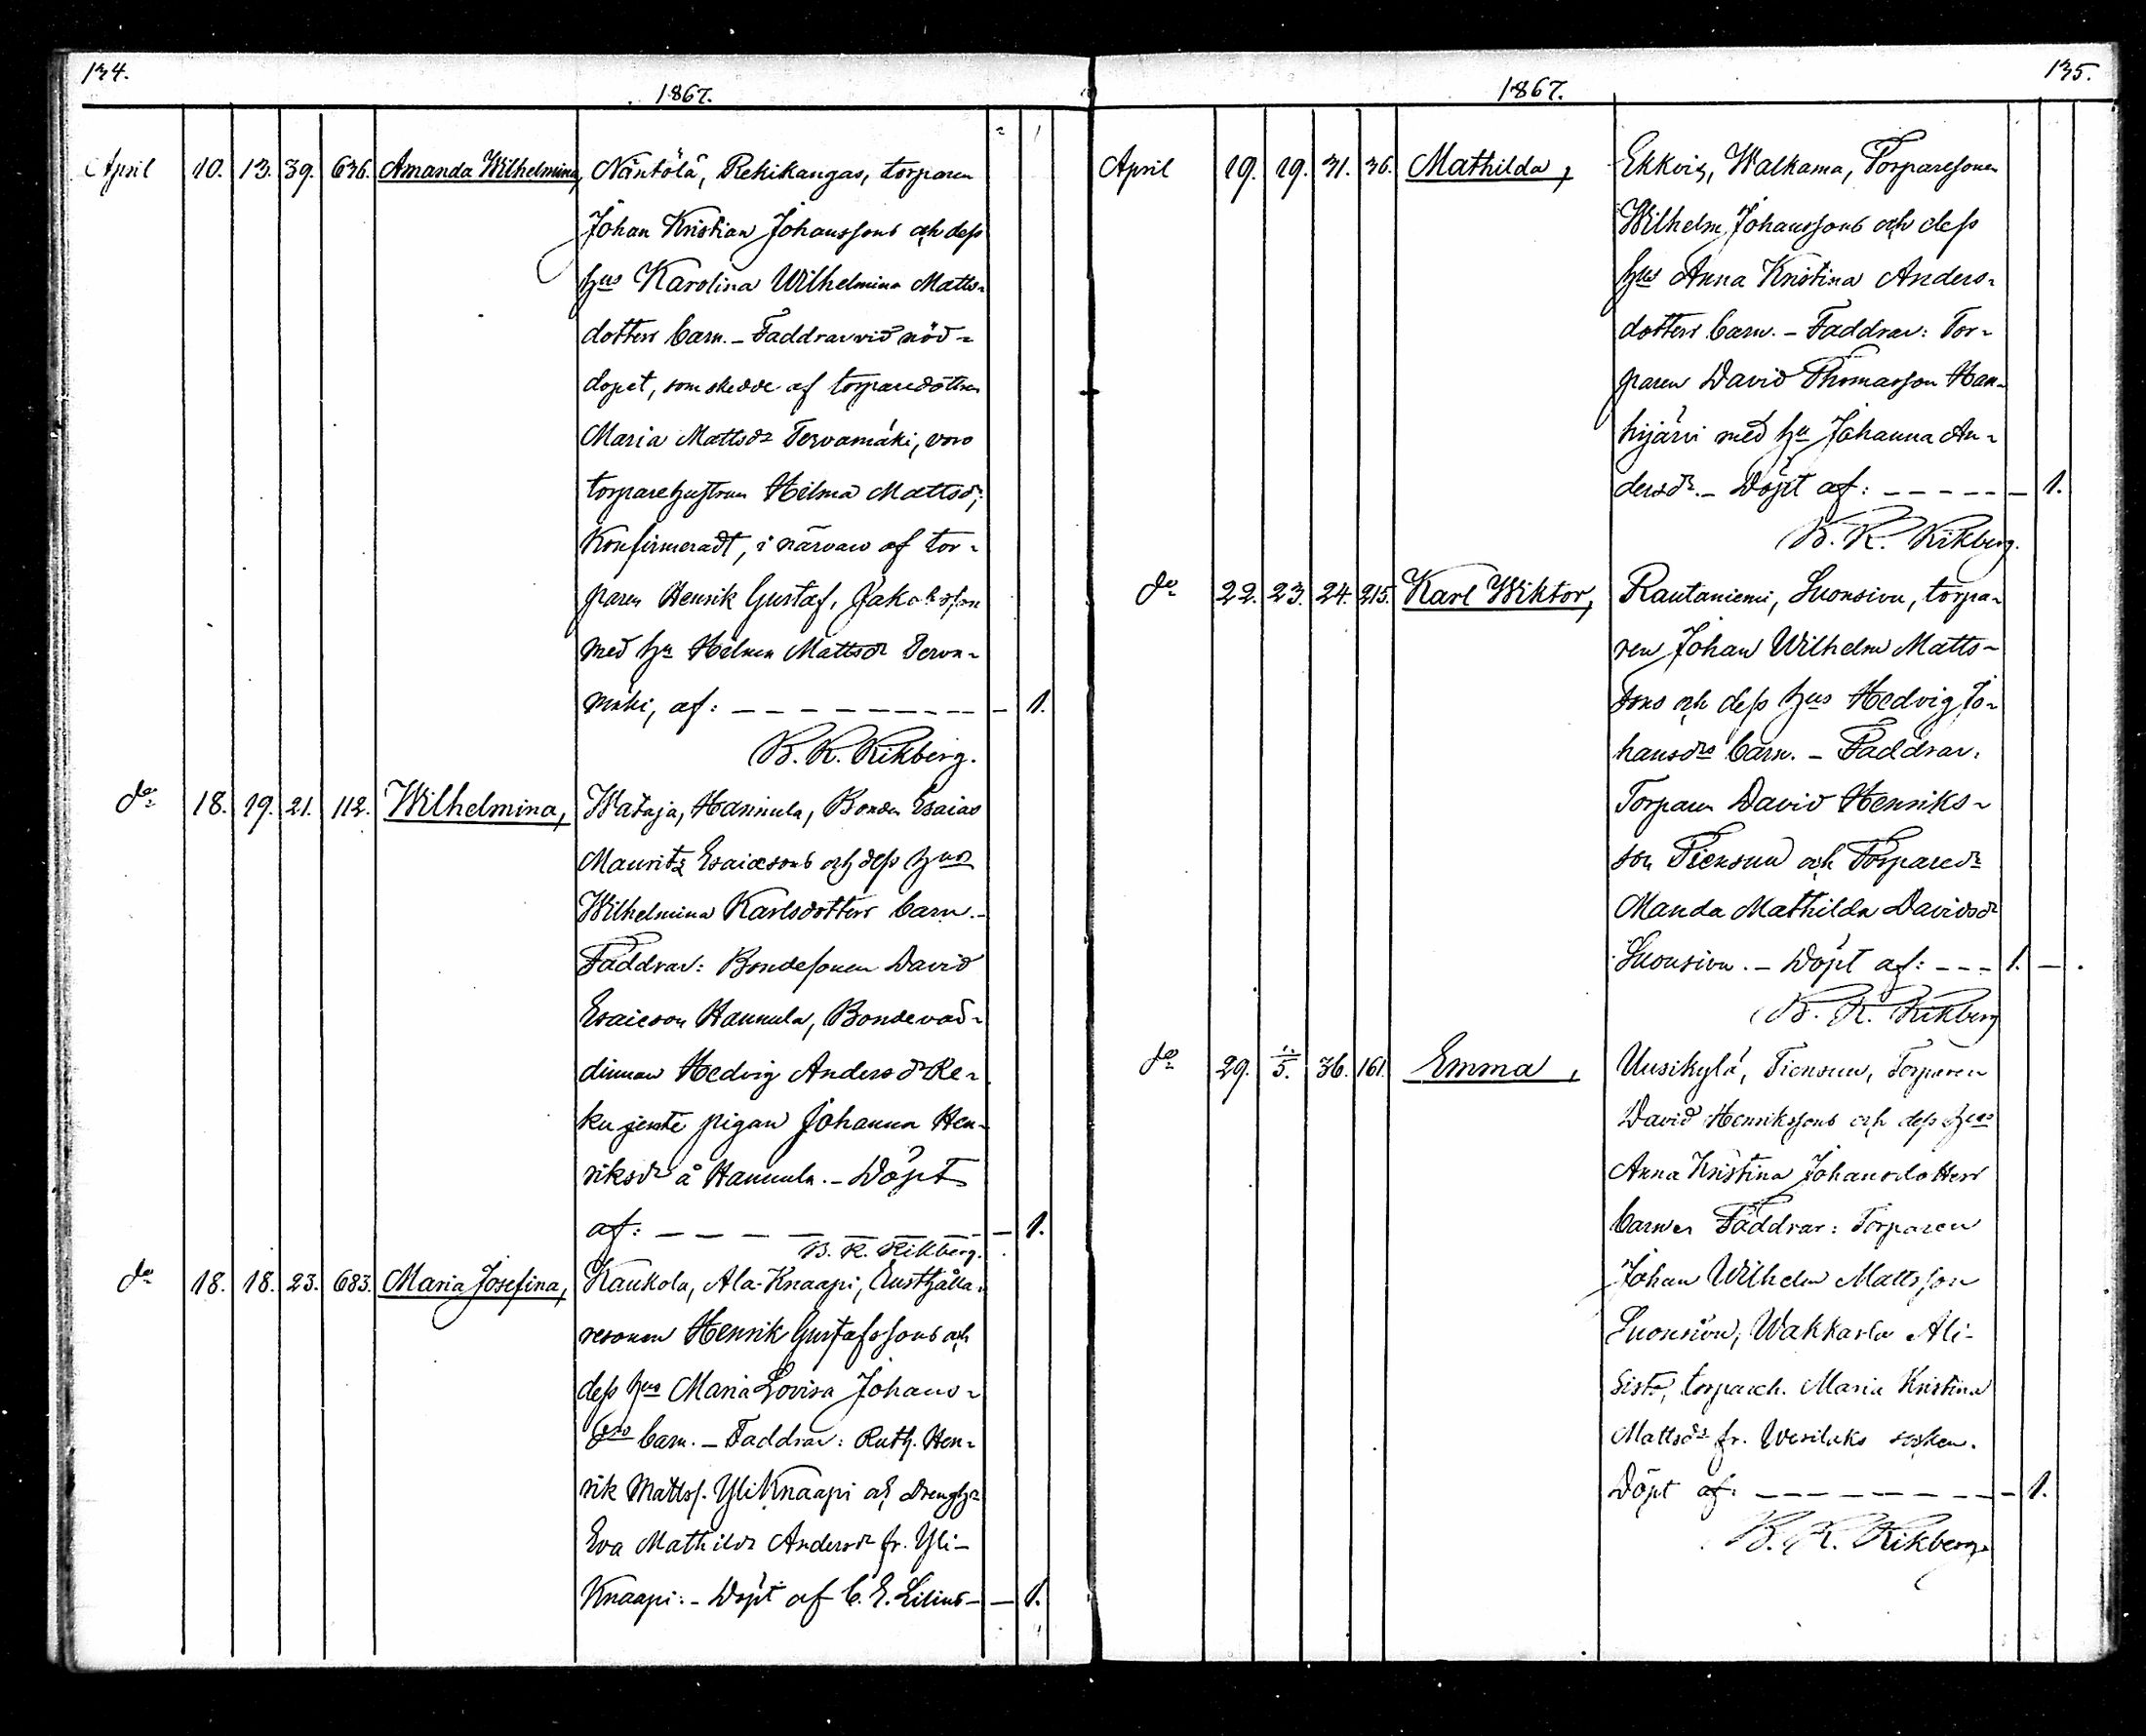 134.
1867.
April 10. 13. 39. 636. Amanda Wilhelmina, Näntölä, Rekikangas, torparen
Johan Kristian Johanssons och dess
hus Karolina Wilhelmina Matts-
dotters barn. – Faddrar vid nöd-
dopet, som skedde af torparedottren
Maria Mattsdr Tervamäki, voro
torparehustrun Hilma Mattsdr;
Konfirmeradt, i närvaro af tor-
paren Henrik Gustaf Jakobsson
med hu Hilma Mattsdr Terva-
mäki, af: – – – – – – – – – – 1.
B. K. Rikberg.
do 18. 19. 21. 112. Wilhelmina, Wataja, Hannula, Bonden Esaias
Mauritz Esaiæsons och dess hus
Wilhelmina Karlsdotters barn. –
Faddrar: Bondesonen David
Esaieson Hannula, Bondevär-
dinnan Hedvig Andersdr Re-
ku jemte pigan Johanna Hen-
riksdr å Hannula. – Döpt
af: – – – – – – – – 1.
B. K. Rikberg.
do 18. 18. 23. 683. Maria Josefina, Kaukola, Ala-Knaapi, Rusthålla-
resonen Henrik Gustafssons och
dess hus Maria Lovisa Johans-
drs barn. – Faddrar: Rusth. Hen-
rik Mattss. Yli Knaapi och drenghu
Eva Mathilda Andersdr fr. Yli-
Knaapi. – Döpt af C. E. Lilius – – 1.
135.
1867.
April 19. 19. 31. 36. Mathilda, Ekkois, Walkama, Torparesonen
Wilhelm Johanssons och dess
hus Anna Kristina Anders-
dotters barn. – Faddrar: Tor-
paren David Thomasson Han-
hijärvi med hu Johanna An-
dersdr. – Döpt af: – – – – – – 1.
B. K. Rikberg.
do 22. 23. 24. 215. Karl Wiktor, Rautaniemi, Suonsivu, torpa-
ren Johan Wilhelm Matts-
sons och dess hus Hedvig Jo-
hansdrs barn. – Faddrar.
Torparen David Henriks-
son Tiensuu och Torparedr
Manda Mathilda Davidsdr
Suonsivu. – Döpt af: – – – 1. –
B. K. Rikberg
do 29. 5. 36. 161. Emma, Uusikylä, Tiensuu, Torparen
David Henrikssons och dess hus
Anna Kristina Johansdotters
barn. Faddrar: Torparen
Johan Wilhelm Mattsson
Suonsivu, Wakkarla Ali-
Sisto, torpareh. Maria Kristina
Mattsdr fr. Vesilaks socken.
Döpt af: – – – – – – – – 1.
B. K. Rikberg.